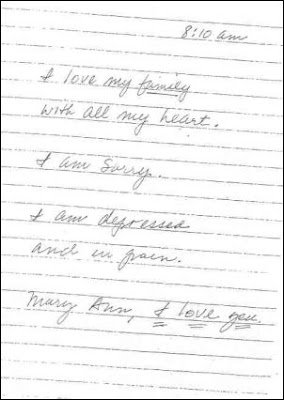 8:10 am
I love my family
with all my heart.
I am Sorry.
I am depressed
and in pain.
Mary Ann, I love you.